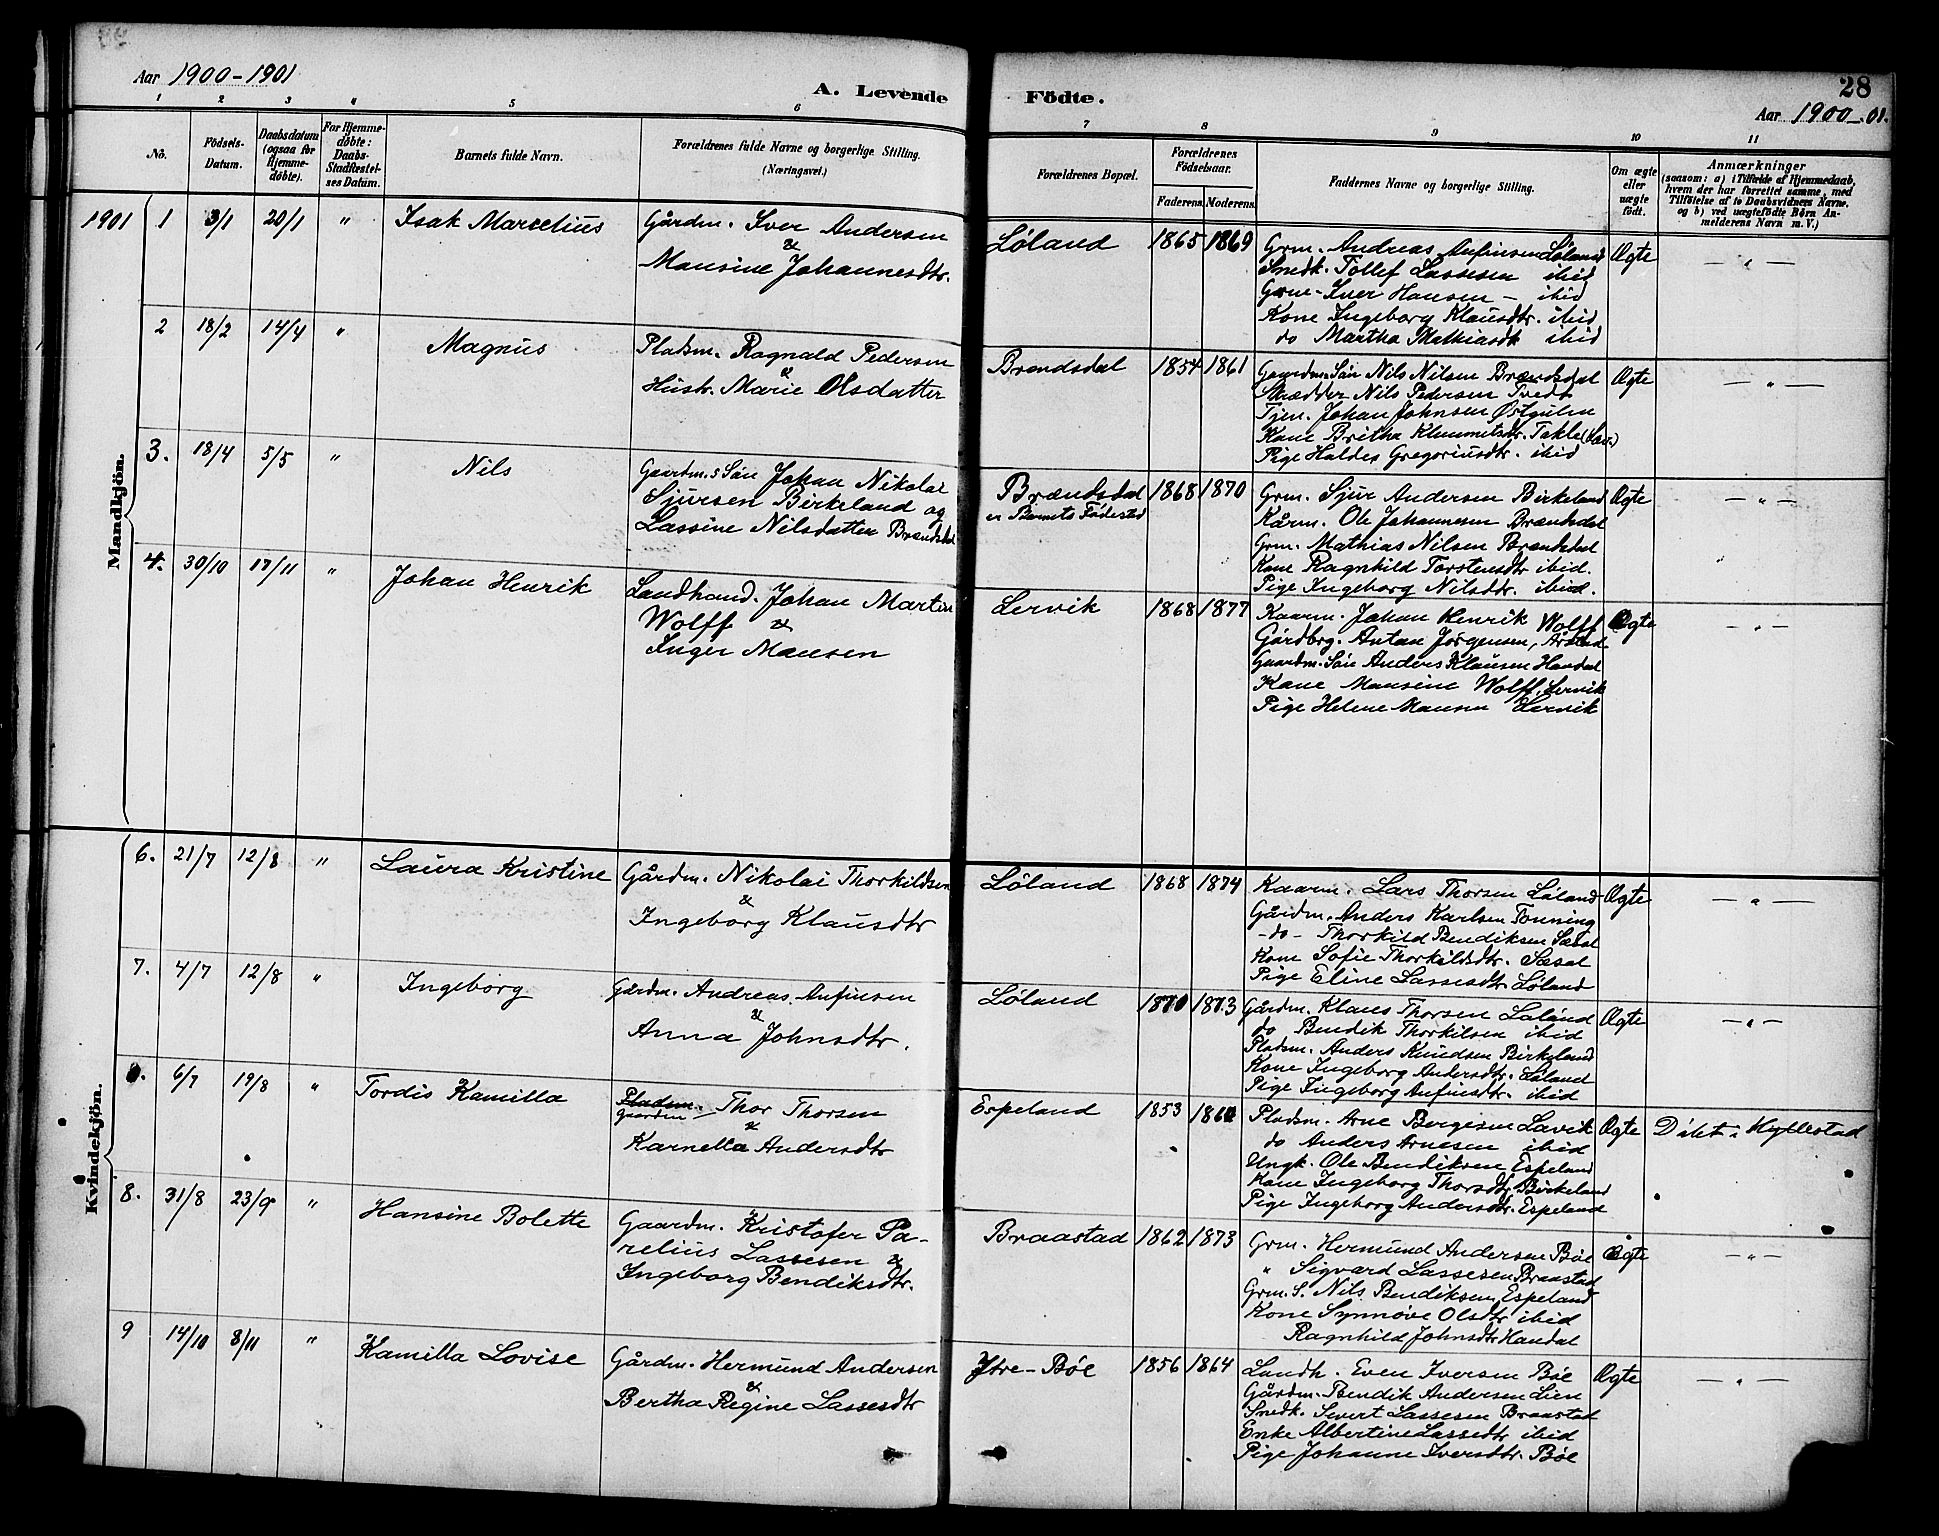 Aar 1900-1901
A. Levende
Födte.
28
Aar 1900-01.
1 2 3 4 5 6 7 8 9 10 11
No.
Födsels-
Datum.
Daabsdatum
(ogsaa for
Hjemme-
döbte).
For Hjemme-
døbte:
Daabs-
Stadfæstel-
ses Datum.
Barnets fulde Navn.
Forældrenes fulde Navne og borgerlige Stilling.
(Næringsvei.)
Forældrenes Bopæl.
Forældrenes
Födselsaar.
Faderens. Moderens.
Faddernes Navne og borgerlige Stilling.
Om ægte
eller
uægte
født.
Anmærkninger
(saasom: a) i Tilfælde af Hjemmedaab,
hvem der har forrettet samme, med
Tilføielse af to Daabsvidners Navne.
og b) ved uægtefödte Börn An-
melderens Navn m. V.)
Mandkjön.
1901 1 3/1 20/1 " Isak Marcelius
Gårdm. Iver Andersen
&
Mausine Johannesdtr.
Løland 1865 1869
Grm. Andreas Anfinsen Løland
Snedk. Tollef Lassesen ibid
Grm. Iver Hansen - ibid
Kone Ingeborg Klausdtr. ibid
do Martha Mathiasdtr ibid
Ægte — " —
2 18/2 14/4 " Magnus
Pladsm. Ragnald Pedersen
&
Hustr. Marie Olsdatter
Brendsdal 1854 1861
Gaardm. Søn Nils Nilsen Brændsdal
Skrædder Nils Pedersen Tvedt
Tjen. Johan Johnsen Østgulen
Kone Britha Klemmetsdtr. Takle
Pige Haldes Gregoriusdtr. ibid
Ægte — " —
3. 18/4 5/5 " Nils
Gaardm.s Søn Johan Nikolai
Sjursen Birkeland og
Lassine Nilsdatter Brændsdal
Brændsdal
er Barnets Fødested
1868 1870
Grm. Sjur Andersen Birkeland
Kårm. Ole Johannesen Brændsdal
Grm. Mathias Nilsen Brændsdal
Kone Ragnhild Torstensdtr ibid.
Pige Ingeborg Nilsdtr. ibid.
Ægte — " —
4. 30/10 17/11 " Johan Henrik
Landhand. Johan Martin
Wolff &
Inger Mausen
Lervik 1868 1877
Kaarm. Johan Henrik Wolff
Gårdbrg. Antan Jørgensen, Årstad.
Gaardm. Søn Anders Klausen Handal
Kone Mansine Wolff, Lervik
Pige Helene Mausen Lervik
Ægte — " —
Kvindekjön.
6. 21/7 12/8 " Laura Kristine
Gårdm. Nikolai Thorkildsen
&
Ingeborg Klausdtr
Løland 1868 1874
Kaarm. Lars Thorsen Løland
Gårdm. Anders Karlsen Tonning
- do - Thorkild Bendiksen Sæsal
Kone Sofie Thorkildsdtr. Sæsal
Pige Eline Lassesdtr. Løland
Ægte — " —
7. 4/7 12/8 " Ingeborg
Gårdm. Andreas Anfinsen
&
Anna Johnsdtr.
Løland 1870 1873
Gårdm. Klaus Thorsen Løland
do Bendik Thorkilsen ibid
Pladsm. Anders Knudsen Birkeland
Kone Ingeborg Andersdtr. Løland
Pige Ingeborg Anfinsdtr. ibid
Ægte — " —
6/7 19/8 " Tordis Kamilla
Pladsm.
gaardm Thor Thorsen
&
Karnella Andersdtr
Espeland 1853
Pladsm. Arne Børgesen Lavik
do Anders Arnesen ibid
Ungk. Ole Bendiksen Espeland
Kone Ingeborg Thorsdtr Birkeland
Pige Ingeborg Andersdtr. Espeland
Ægte Døbt i Hyllestad
8. 31/8 23/9 " Hansine Bolette
Gaardm. Kristofer Pa-
relius Lassesen &
Ingeborg Bendiksdtr.
Braastad 1862 1873
Grm. Hermund Andersen Bøe
" Sigvard Lassesen Braastad
Grm. S. Nils Bendiksen, Espeland
Kone Synnøve Olsdtr ibid
Ragnhild Johnsdtr Handal
Ægte — " —
9 14/10 8/11 " Kamilla Lovise
Gårdm. Hermund Andersen
&
Bertha Regine Lassesdtr
Ytre-Bøe 1856 1864
Landh. Even Iversen Bøe
Gårdm. Bendik Andersen Lien
Snedk. Sivert Lassesen Braastad
Enke Albertine Lassedtr ibid
Pige Johanne Iversdtr. Bøe
Ægte — " —